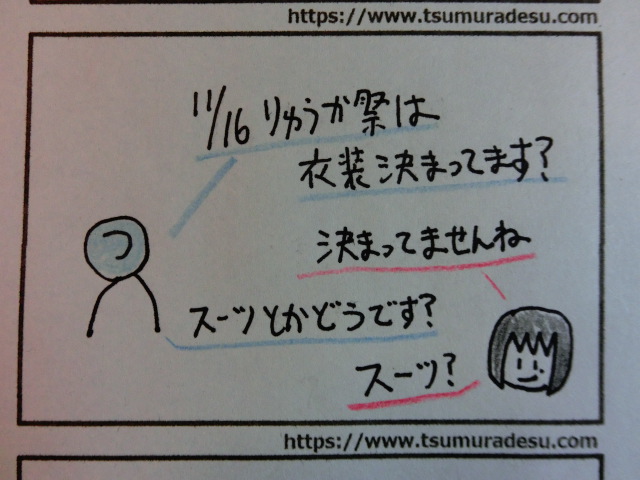 https://www.tsumuradesu.com
11/16 りゅうか祭は
衣装決まってます?
つ
決まってませんね
スーツとかどうです?
スーツ?
https://www.tsumuradesu.com